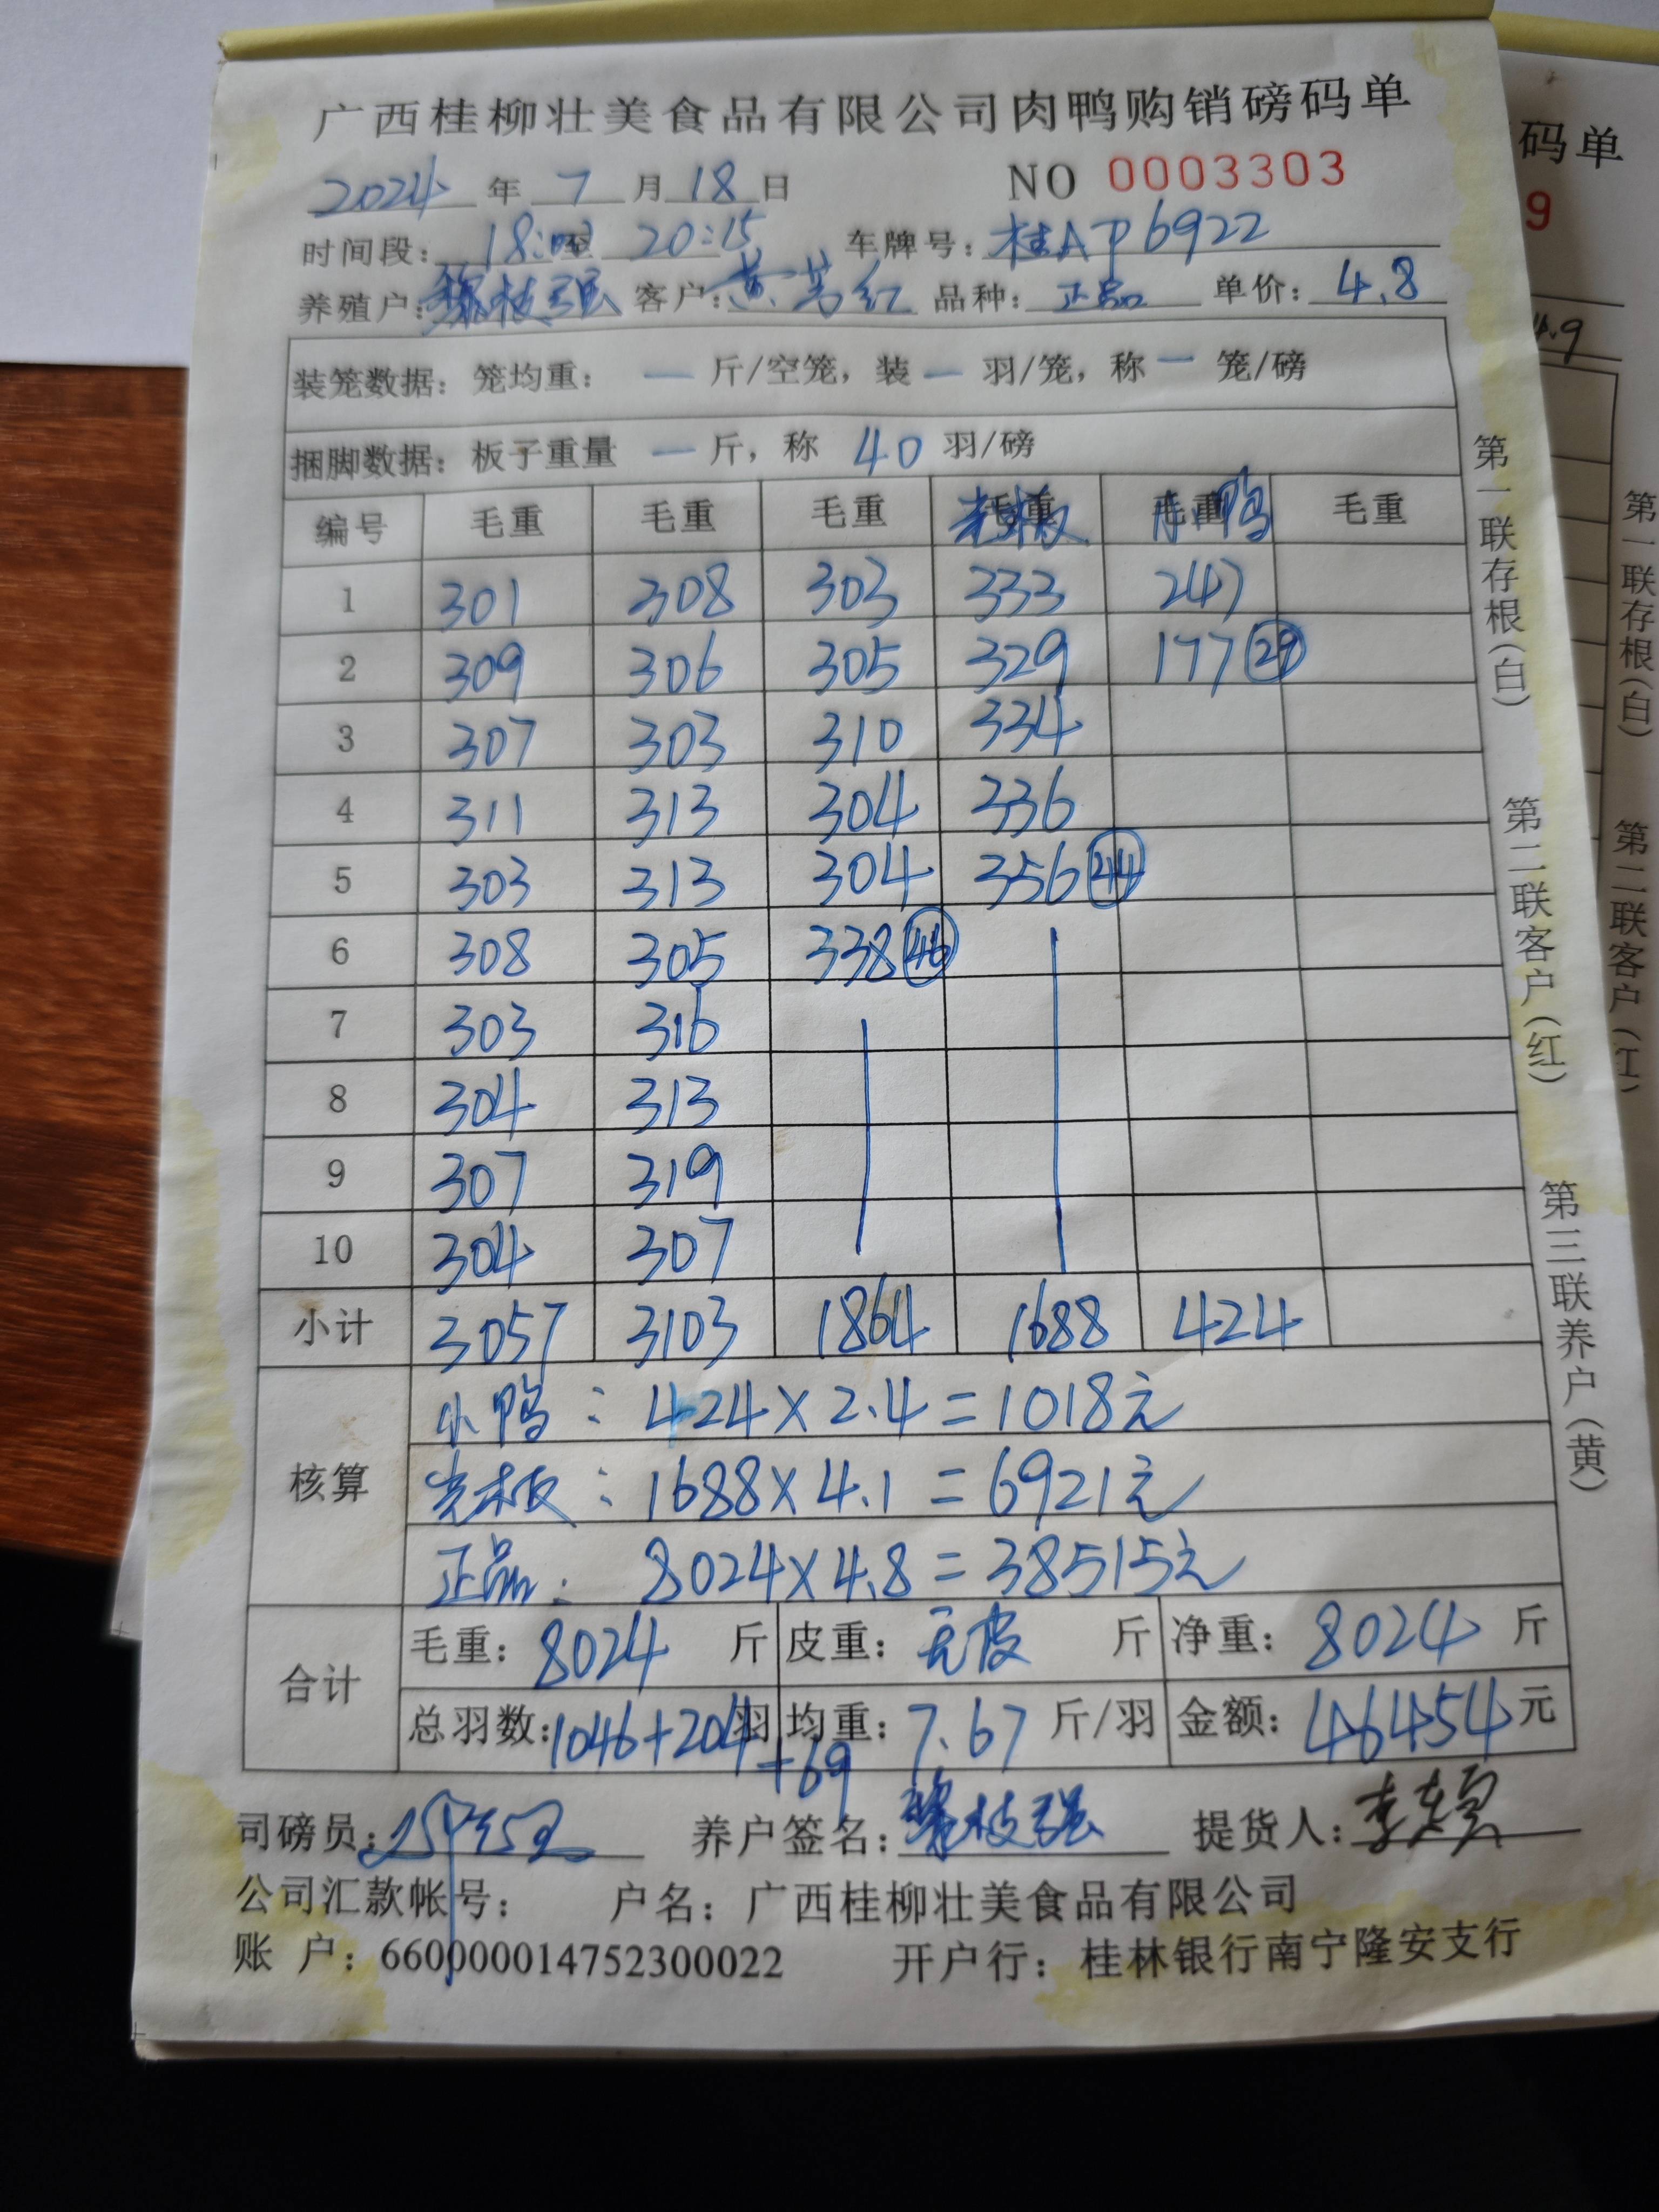 广西桂柳壮美食品有限公司肉鸭购销磅码单
2024 年 7 月 18 日 NO 0003303
时间段: 18: 至 20:15 车牌号: 桂AP6922
养殖户: 枝强 客户: 黄 红 品种: 正品 单价: 4.8
装笼数据: 笼均重: — 斤/空笼, 装 — 羽/笼, 称 — 笼/磅
捆脚数据: 板子重量 — 斤, 称 40 羽/磅
编号 毛重 毛重 毛重 毛重 光板 毛重 小鸭 毛重
1 301 308 303 333 247
2 309 306 305 329 177 29
3 307 303 310 334
4 311 313 304 336
5 303 313 304 356 44
6 308 305 338 46
7 303 316
8 304 313
9 307 319
10 304 307
小计 3057 3103 1864 1688 424
核算
小鸭: 424×2.4=1018元
光板: 1688×4.1=6921元
正品: 8024×4.8=38515元
合计
毛重: 8024 斤 皮重: 无皮 斤 净重: 8024 斤
总羽数: 1046+204 羽 +69 均重: 7.67 斤/羽 金额: 46454 元
司磅员: 养户签名: 枝强 提货人: 李
公司汇款帐号: 户名: 广西桂柳壮美食品有限公司
账 户: 660000014752300022 开户行: 桂林银行南宁隆安支行
第一联存根(白) 第二联客户(红) 第三联养户(黄)
码单
9
4.9
第一联存根(白) 第二联客户(红)